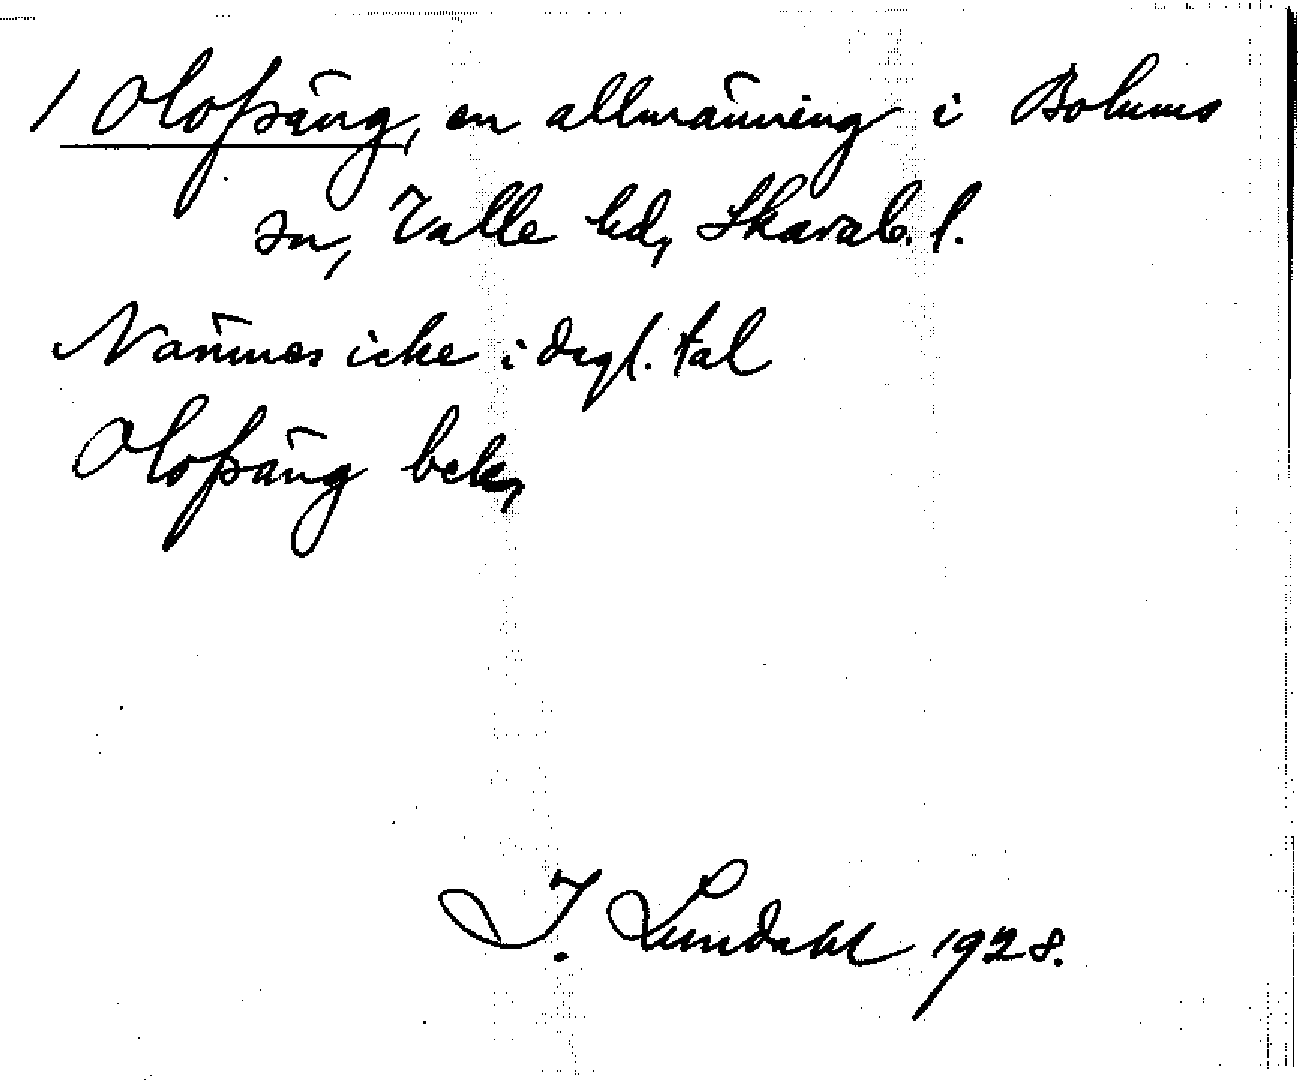 / Olofsäng, en allmänning i Bolums
sn, Valle hd, Skarab. l.
Nämnes icke i dagl. tal
Olofsäng bek,
I. Lundahl 1928.